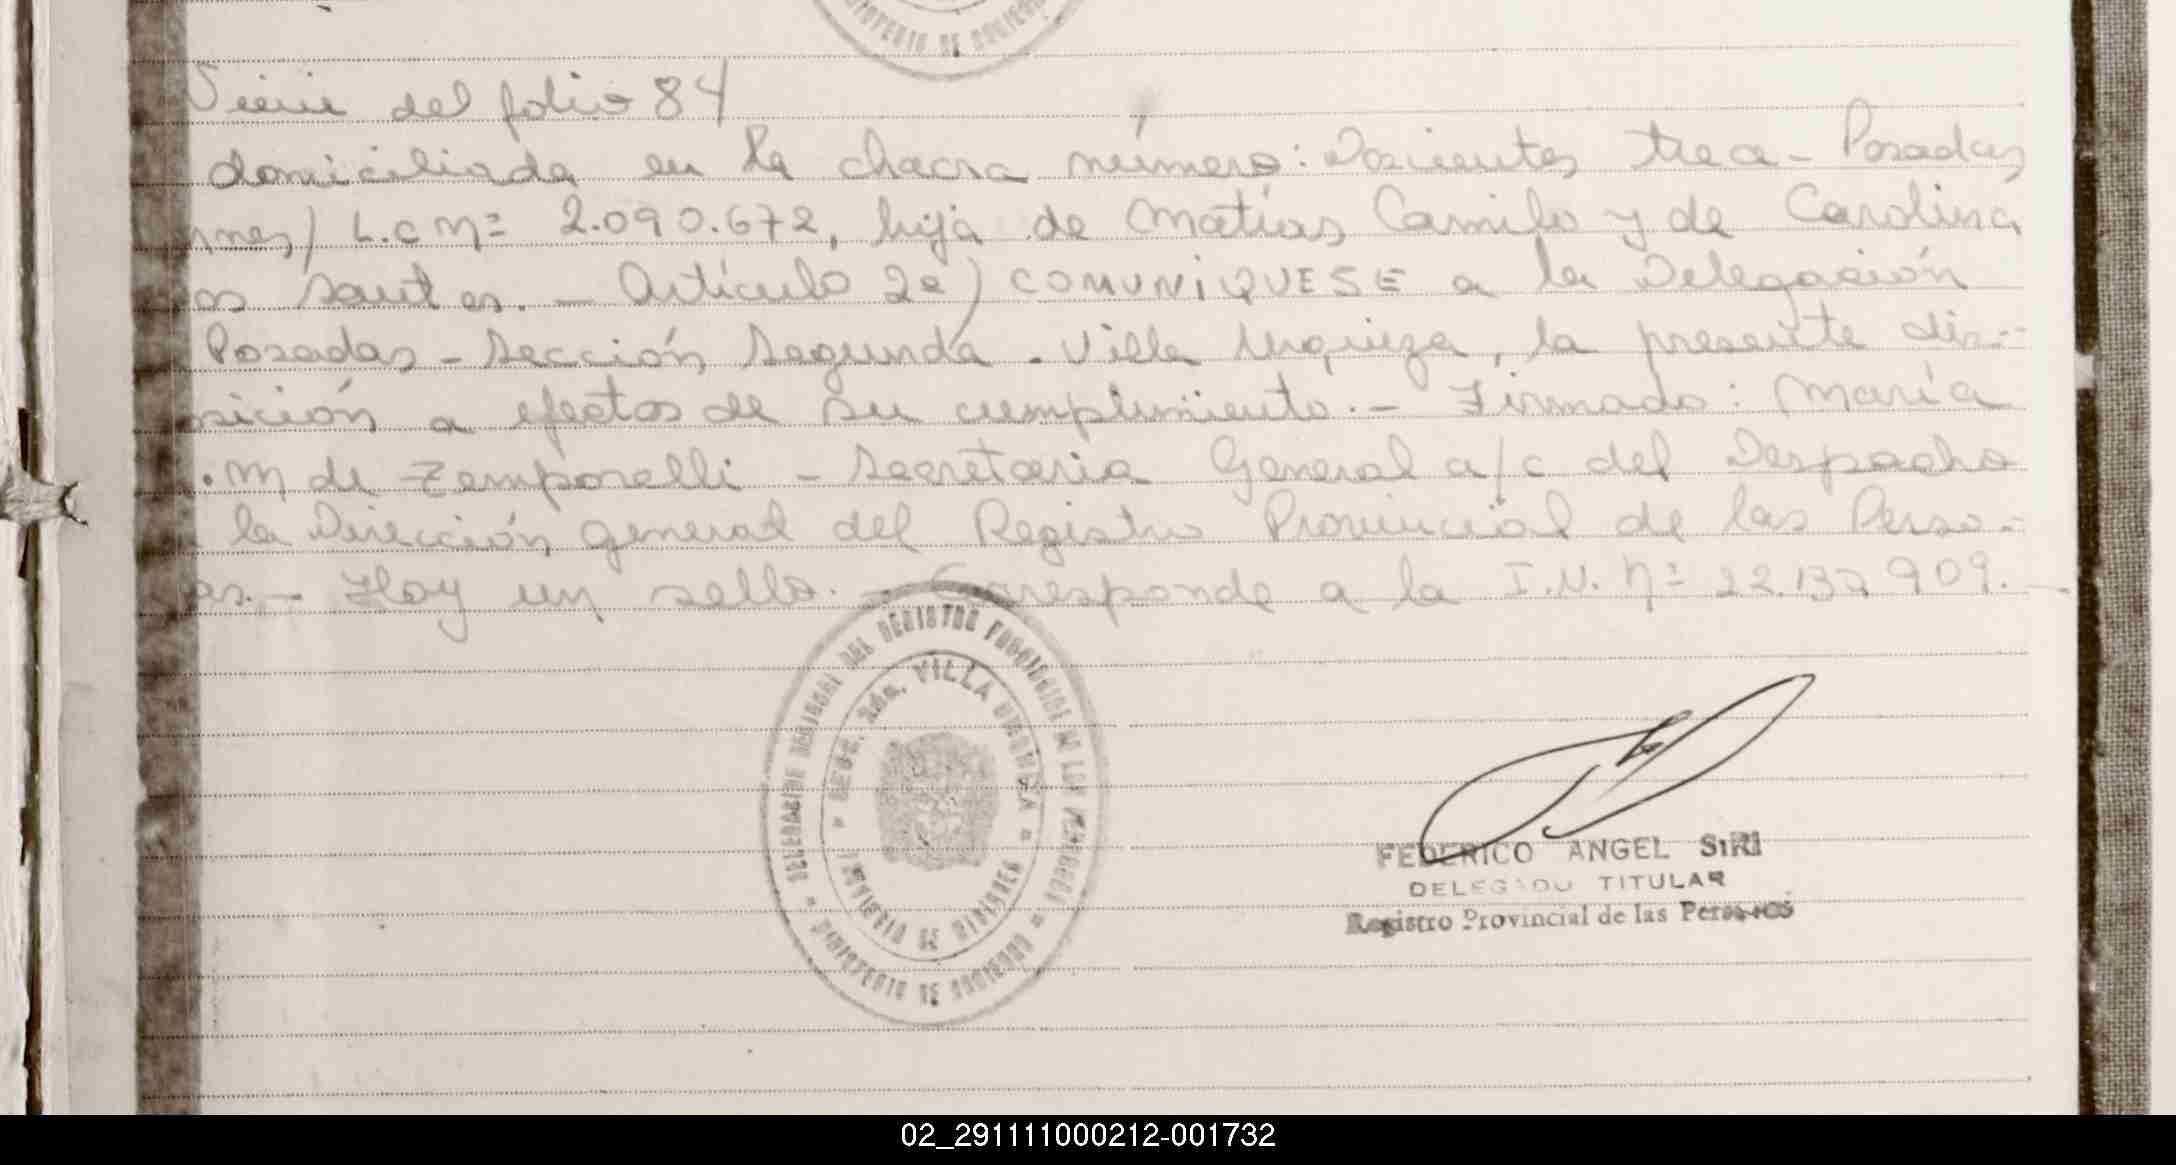 MINISTERIO DE GOBIERNO
Viene del folio 84
domiciliada en la chacra número: Doscientos trece - Posadas
nes) L.C Nº 2.090.672, hija de Matías Camilo y de Carolina
os Santos. - Artículo 2º) COMUNIQUESE a la Delegación
Posadas - Sección Segunda - Villa Urquiza, la presente dis-
osición a efectos de su cumplimiento. - Firmado: María
. M de Zamporelli - Secretaria General a/c del Despacho
la Dirección general del Registro Provincial de las Perso-
as. - Hay un sello. - Corresponde a la I.N. Nº 22.137909. -
DELEGACION REGIONAL DEL REGISTRO PROVINCIAL DE LAS PERSONAS
SECC. 2da. VILLA URQUIZA
PROVINCIA DE MISIONES
MINISTERIO DE GOBIERNO
FEDERICO ANGEL SIRI
DELEGADO TITULAR
Registro Provincial de las Personas
02_291111000212-001732